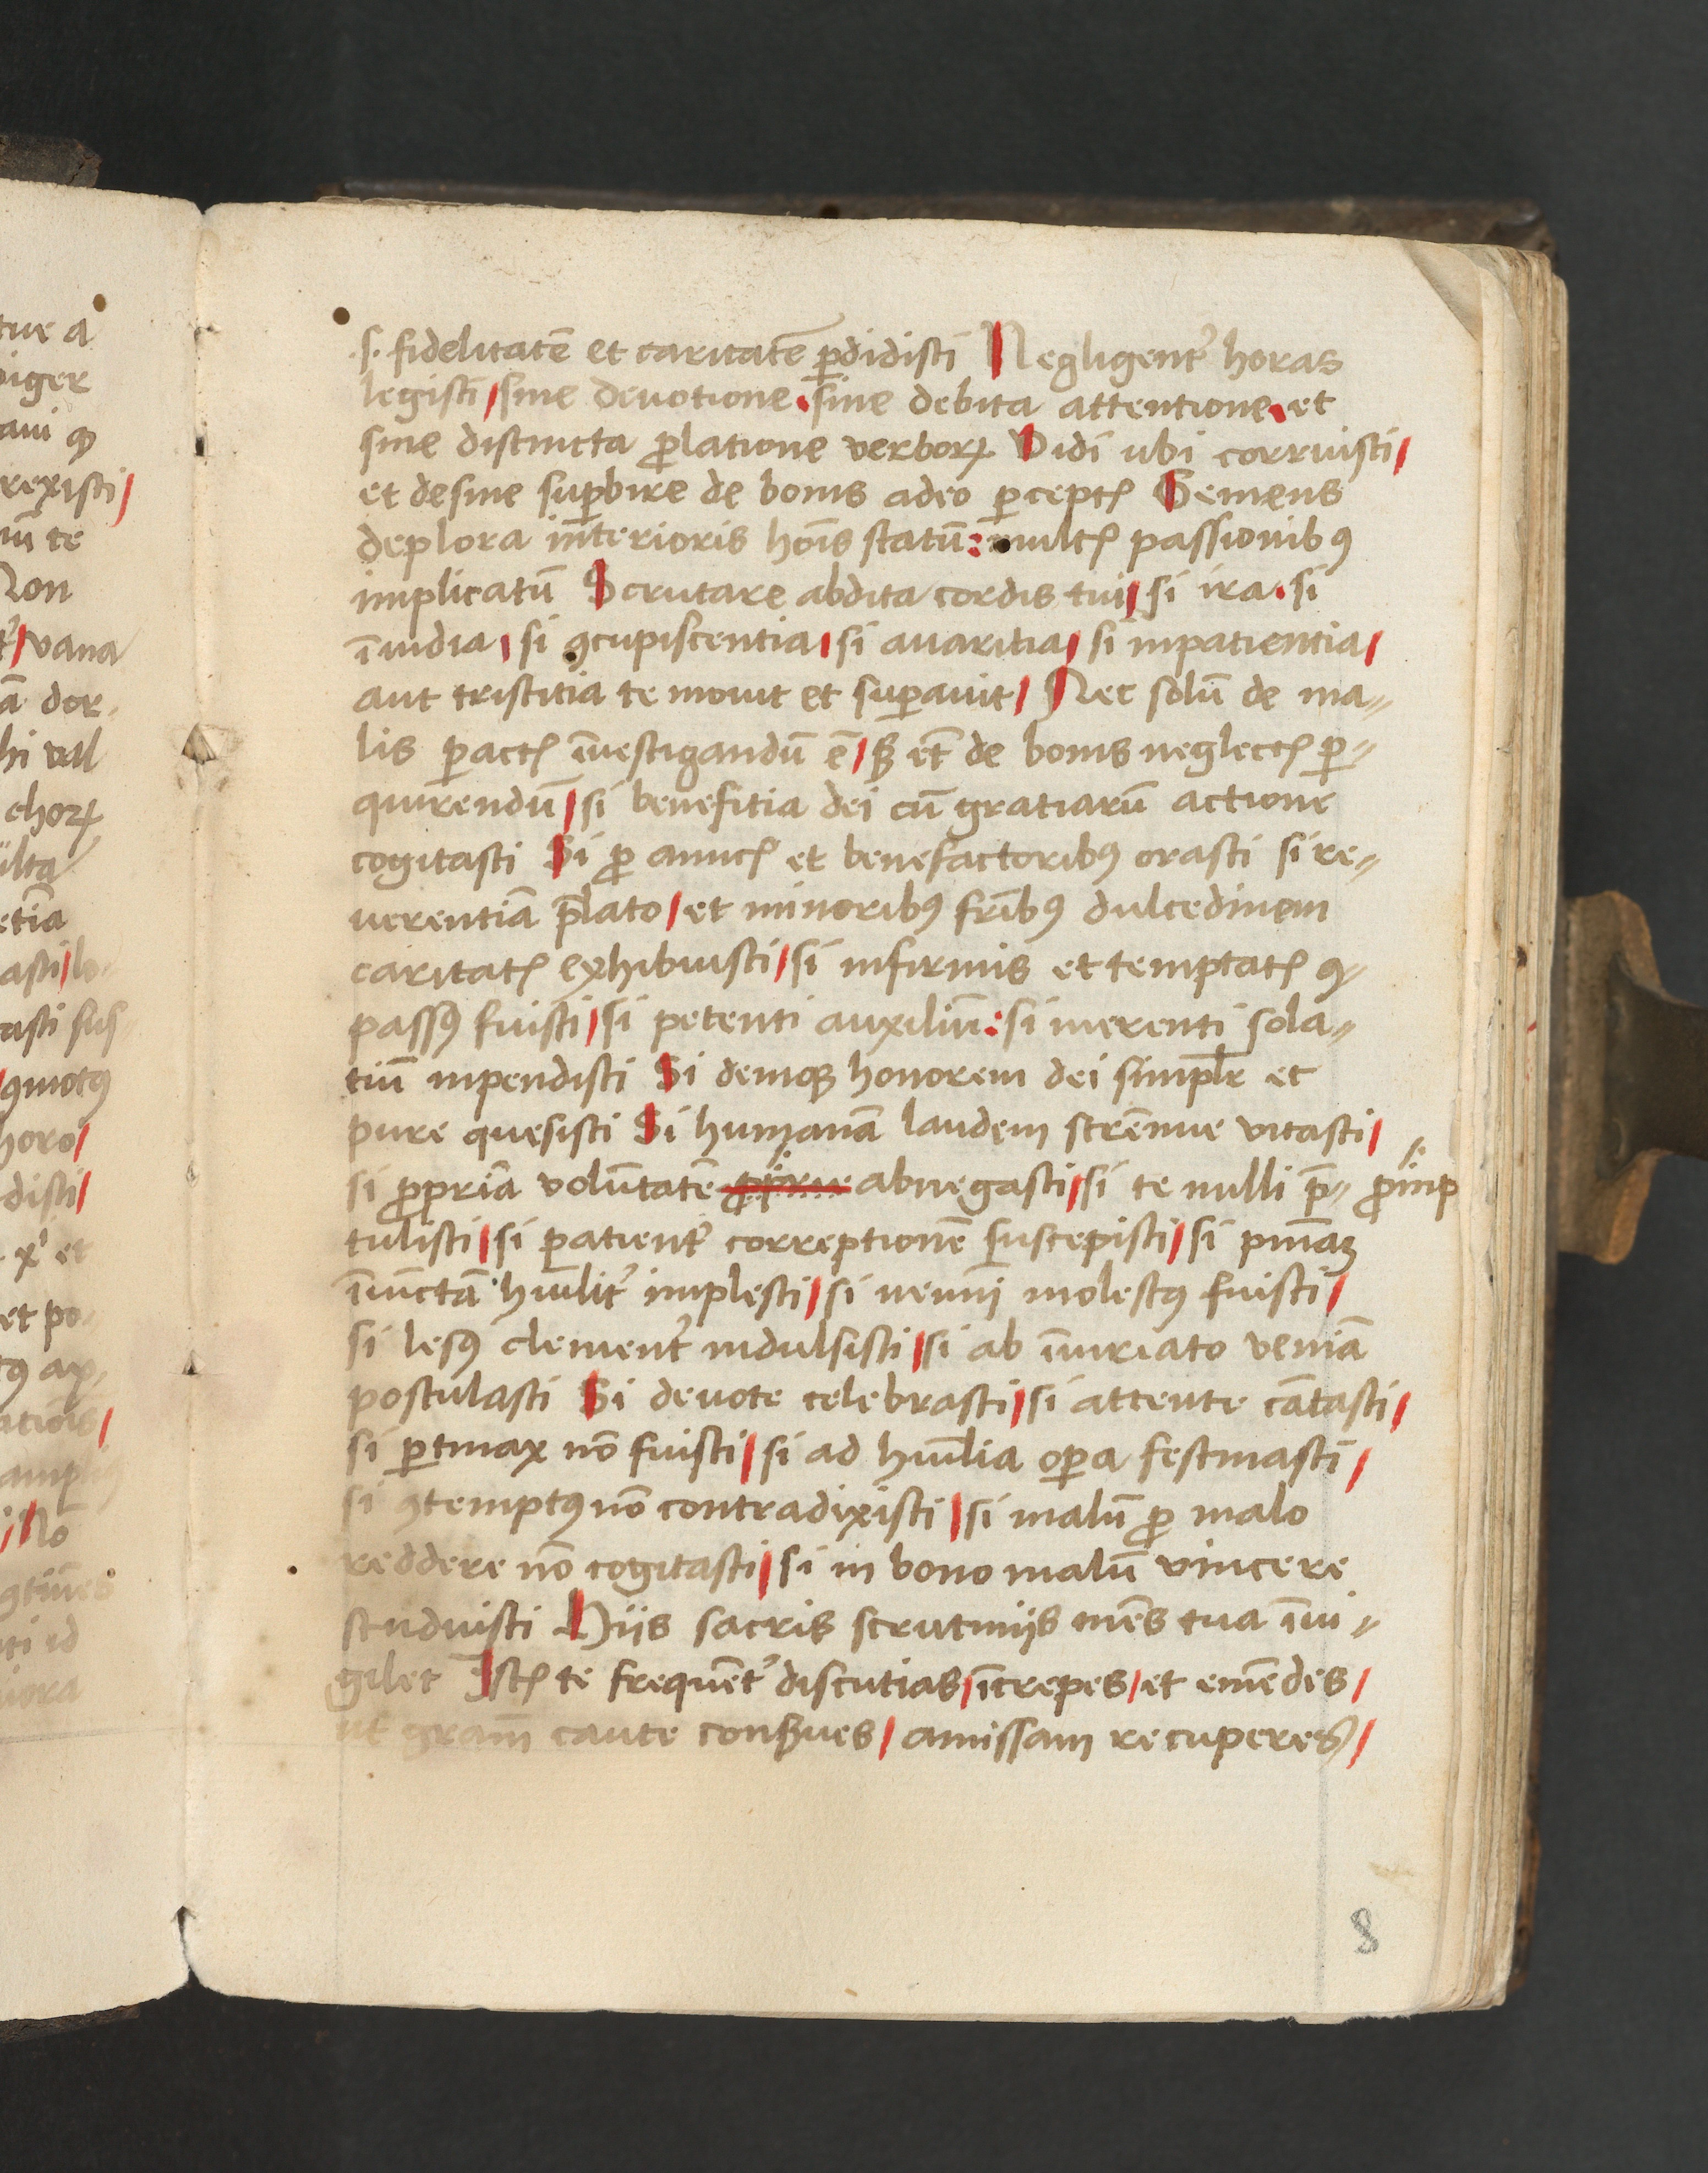 tue a
piger
aui ꝙ
rexisti/
iū te
Non
/vana
ā dor-
hi vel
choꝝ
ulta
etia
asti/
asti sus
ꝯmotꝰ
horo/
disti/
xi et
et po
ꝰ ax
/
/No
ti id
iora
.s. fidelitatē et caritatē ꝑdidisti Negligent᷑ horas
legisti/sine deuotione.sine debita attentione.et
sine distincta ꝓlatione verboꝝ Vidi ubi corruisti/
et desine supꝑbire de bonis adeo ꝑceptꝭ Gemens
deplora interioris hoīs statū: multꝭ passionibꝰ
implicatū Scrutare abdita cordis tui/si ira.si
īuidia/si ꝯcupiscentia/si auaritia/si inpatientia/
aut tristitia te mouit et supꝑauit/ Nec solū de ma-
lis ꝑactꝭ īuestigandū ē/sꝫ et̄ de bonis neglectꝭ ꝑ-
quirendū/si benefitia dei cū gratiarū actione
cogitasti Si ꝓ amicꝭ et benefactoribꝰ orasti si re-
uerentiā p̄lato/et minoribꝰ fr̄ibꝰ dulcedinem
caritatꝭ exhibuisti/si infirmis et temptatꝭ ꝯ-
passꝰ fuisti/si petenti auxiliū:si merenti sola-
tiū inpendisti Si deniqꝫ honorem dei simpl̄r et
pure quesisti Si humanā laudem strēnue vitasti/
si ꝓpriā volūtatē abnegasti/si te nulli p̄- ꝓinp
tulisti/si ꝑatient᷑ correptionē suscepisti/si pn̄iaꝫ
īiūctā hūilit᷑ implesti/si nemini molestꝰ fuisti/
si lesꝰ clement᷑ indulsisti/si ab īiuriato veniā
postulasti Si deuote celebrasti/si attente cātasti/
si ꝑtinax nō fuisti/si ad hūilia oꝑa festinasti/
si ꝯtemptꝰ nō contradixisti/si malū ꝓ malo
reddere nō cogitasti/si in bono malū vincere
studuisti Hiis sacris scrutinijs mēs tua īui-
gilet Istꝭ te frequēt᷑ discutias/īcrepes/et emēdes/
ut gram̄ caute conẜues/amissam recuperes/
8